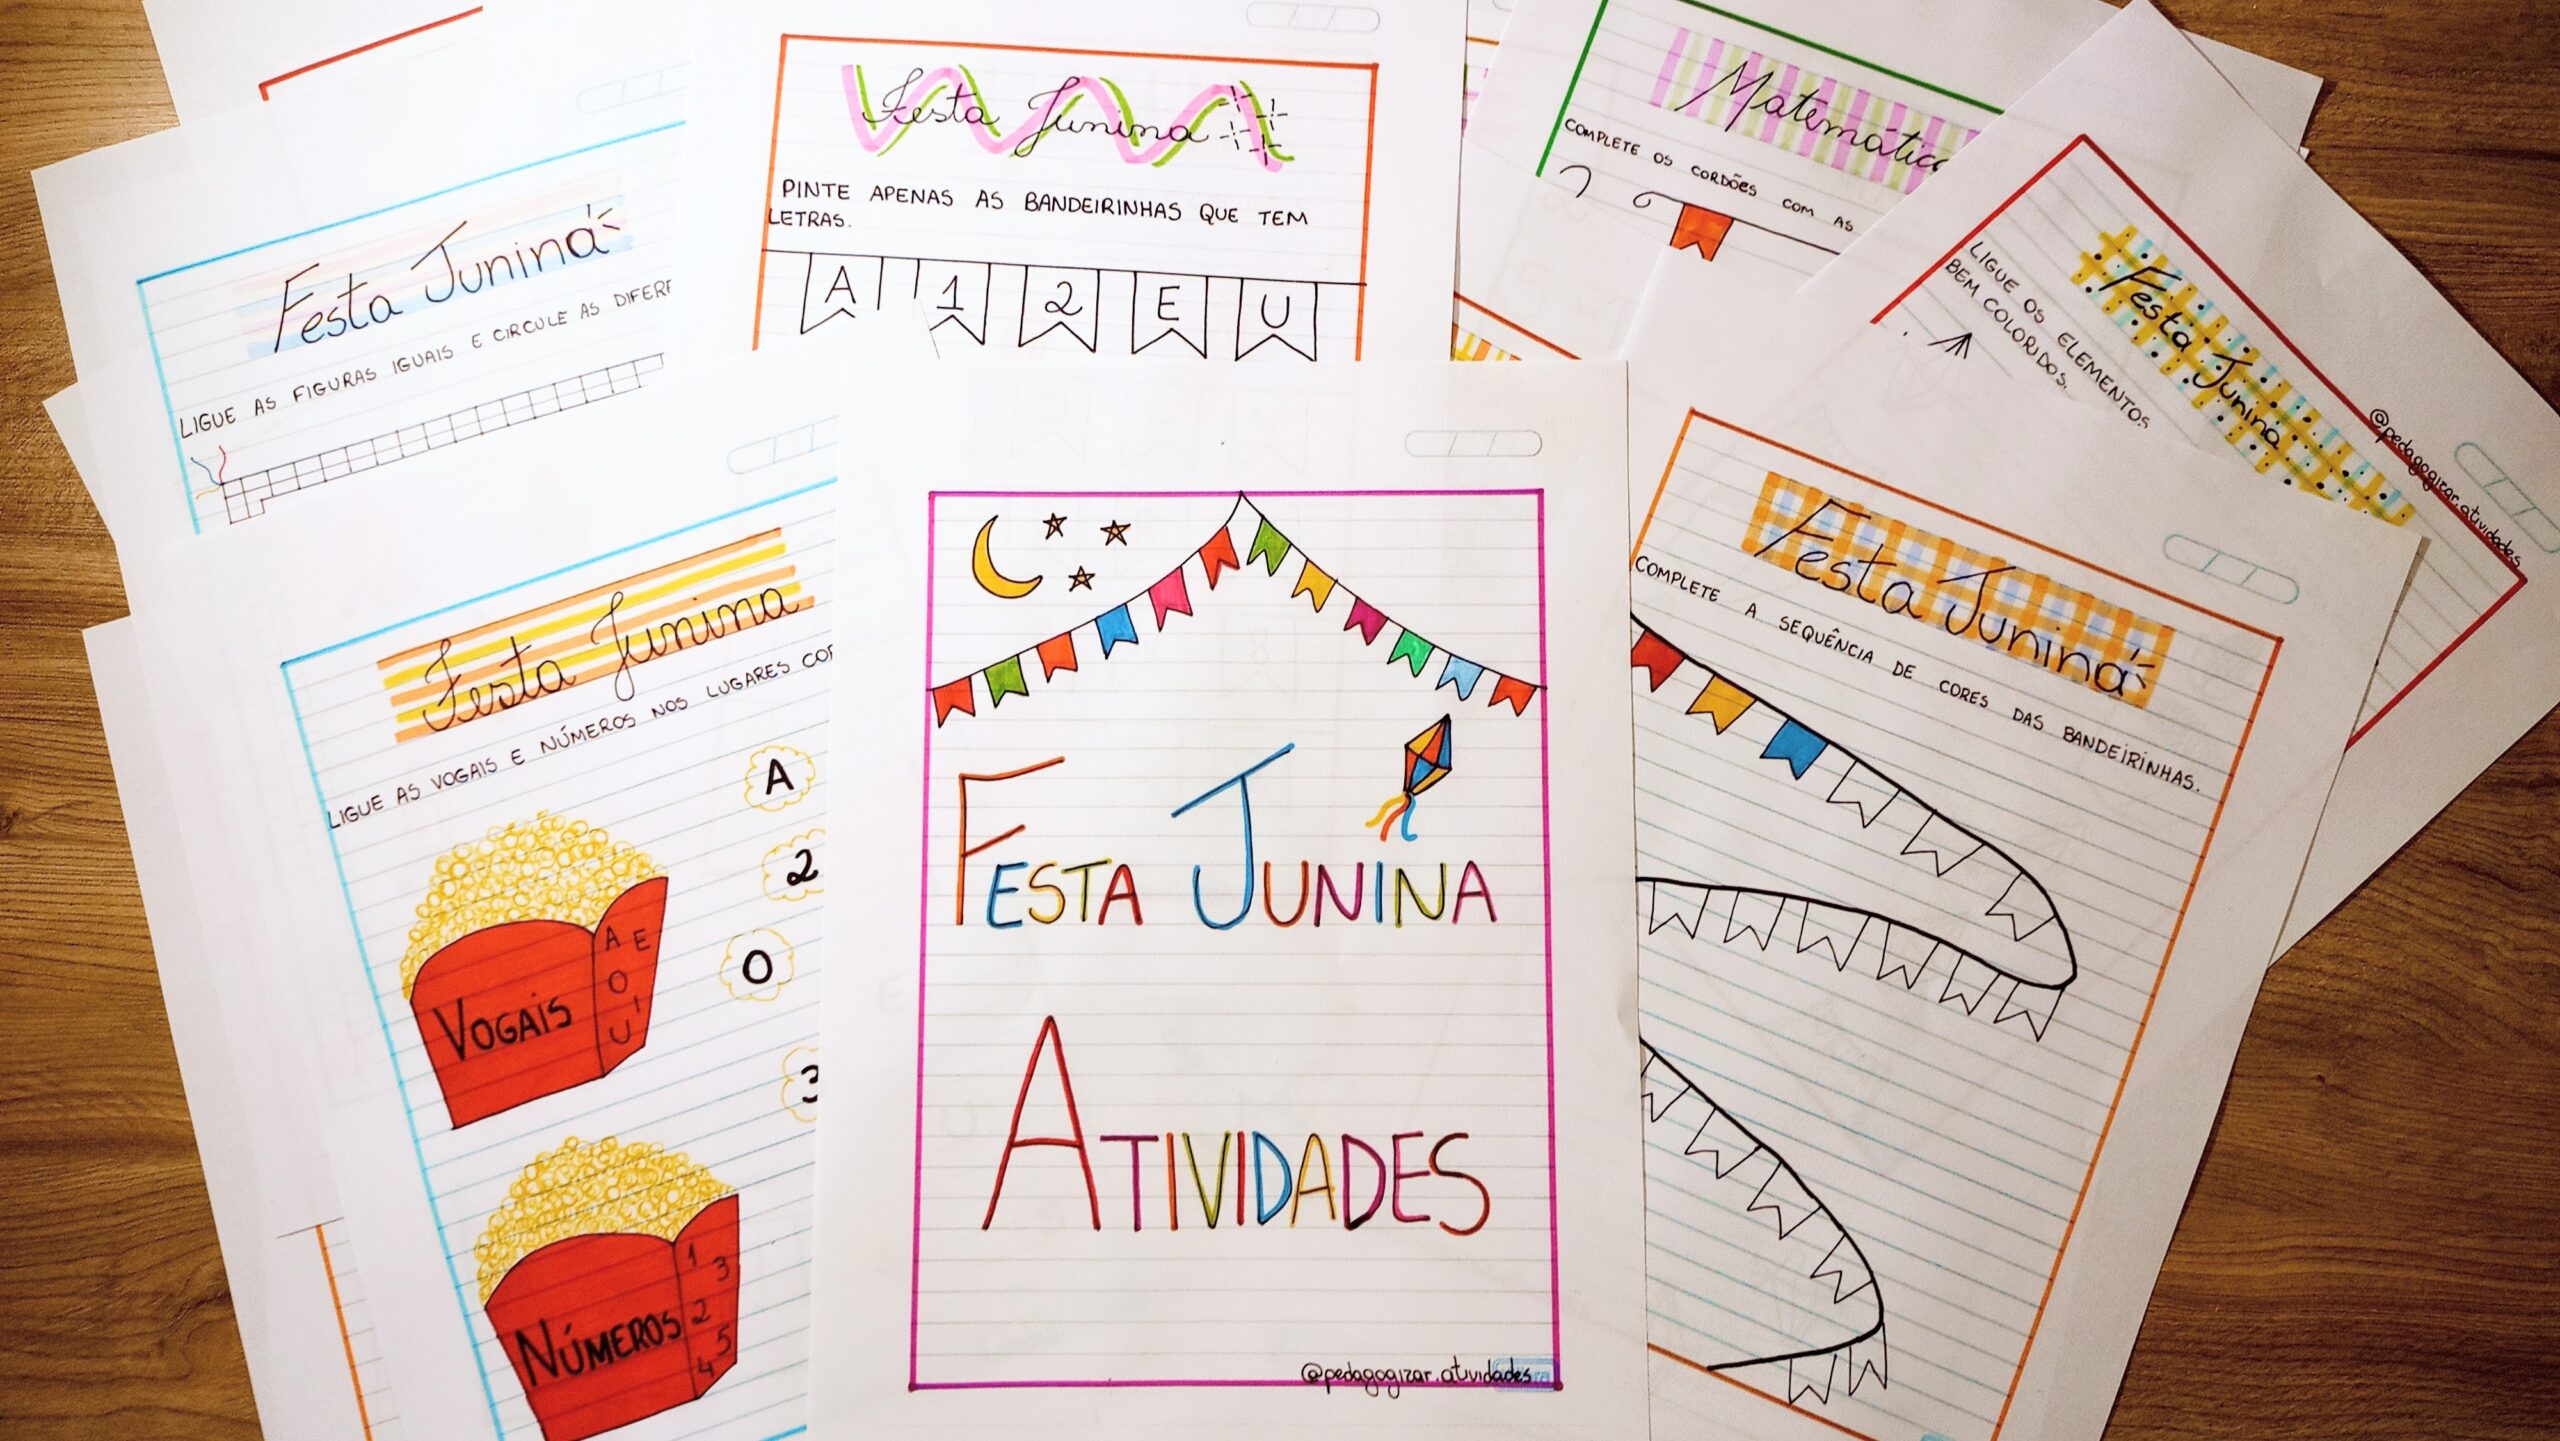 Festa Junina
LIGUE AS FIGURAS IGUAIS E CIRCULE AS
Festa Junina
PINTE APENAS AS BANDEIRINHAS QUE TEM
LETRAS.
A 1 2 E U
Matemática
COMPLETE OS CORDÕES COM AS
Festa Junina
LIGUE OS ELEMENTOS
BEM COLORIDOS.
@pedagogizar.atividades
Festa Junina
LIGUE AS VOGAIS E NÚMEROS NOS LUGARES
A
2
O
3
VOGAIS
A E
O
I
U
NÚMEROS
1
3
2
5
4
FESTA JUNINA
ATIVIDADES
@pedagogizar.atividades
Festa Junina
COMPLETE A SEQUÊNCIA DE CORES DAS BANDEIRINHAS.